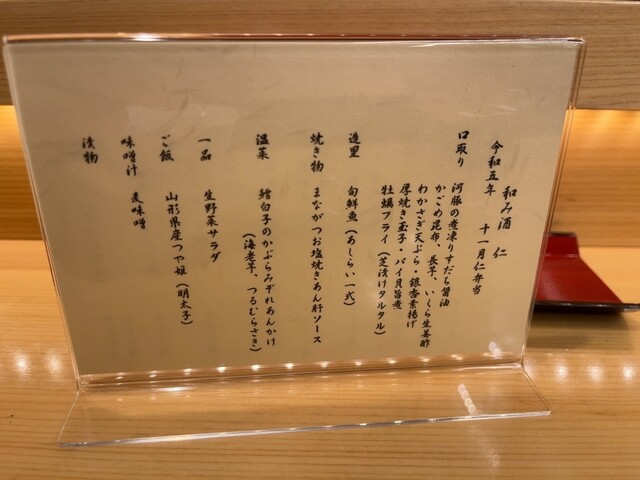 和み酒　仁
令和五年　十一月仁弁当
口取り　河豚の煮凍りすだち醤油
かごめ昆布、長芋、いくら生姜酢
わかさぎ天ぷら・銀杏素揚げ
厚焼き玉子・バイ貝旨煮
牡蠣フライ（芝漬けタルタル）
造里　旬鮮魚（あしらい一式）
焼き物　まながつお塩焼きあん肝ソース
温菜　鱈白子のかぶらみぞれあんかけ
（海老芋、つるむらさき）
一品　生野菜サラダ
ご飯　山形県産つや姫（明太子）
味噌汁　麦味噌
漬物